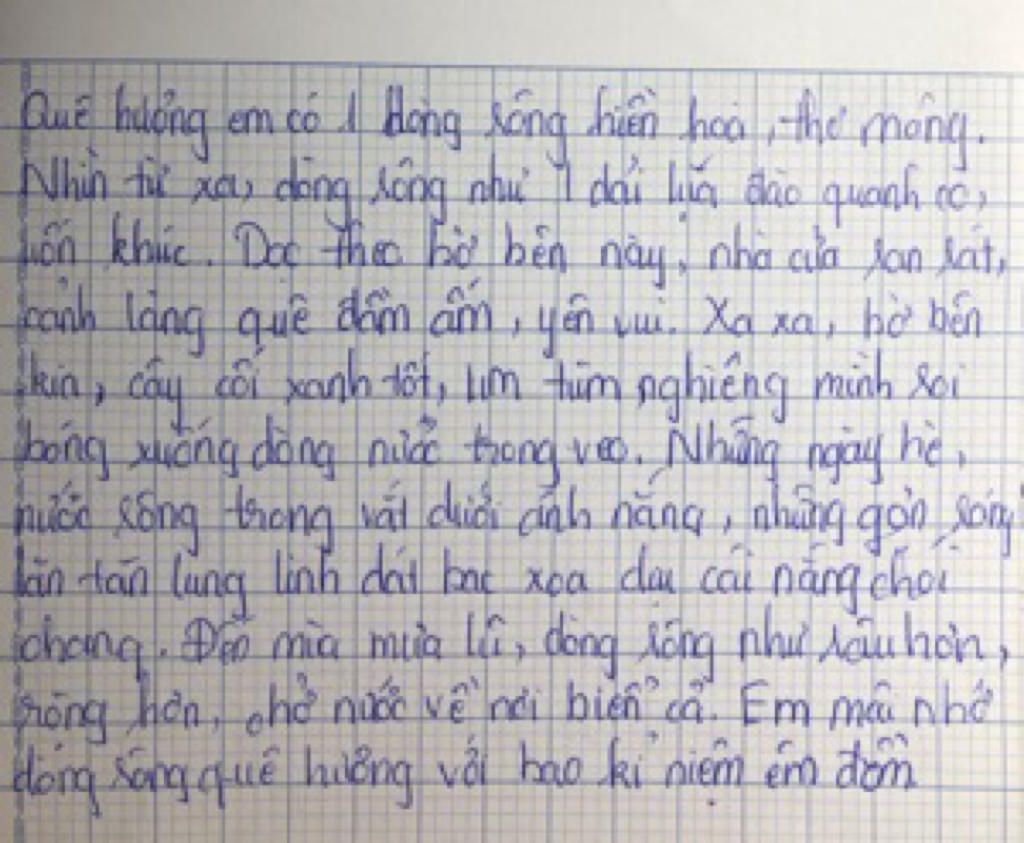 Quê hương em có 1 dòng sông hiền hoà, thơ mộng.
Nhìn từ xa, dòng sông như 1 dải lụa đào quanh co,
uốn khúc. Dọc theo bờ bên này, nhà cửa san sát,
cảnh làng quê đầm ấm, yên vui. Xa xa, bờ bên
kia, cây cối xanh tốt, um tùm nghiêng mình soi
bóng xuống dòng nước trong veo. Những ngày hè,
nước sông trong vắt dưới ánh nắng, những gợn sóng
lăn tăn lung linh dát bạc xoa dịu cái nắng chói
chang. Đến mùa mưa lũ, dòng sông như sâu hơn,
rộng hơn, chở nước về nơi biển cả. Em mãi nhớ
dòng sông quê hương với bao kỉ niệm êm đềm